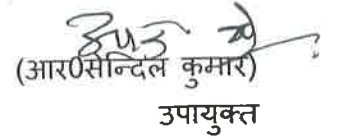 (आर0सेन्दिल कुमार)
उपायुक्त